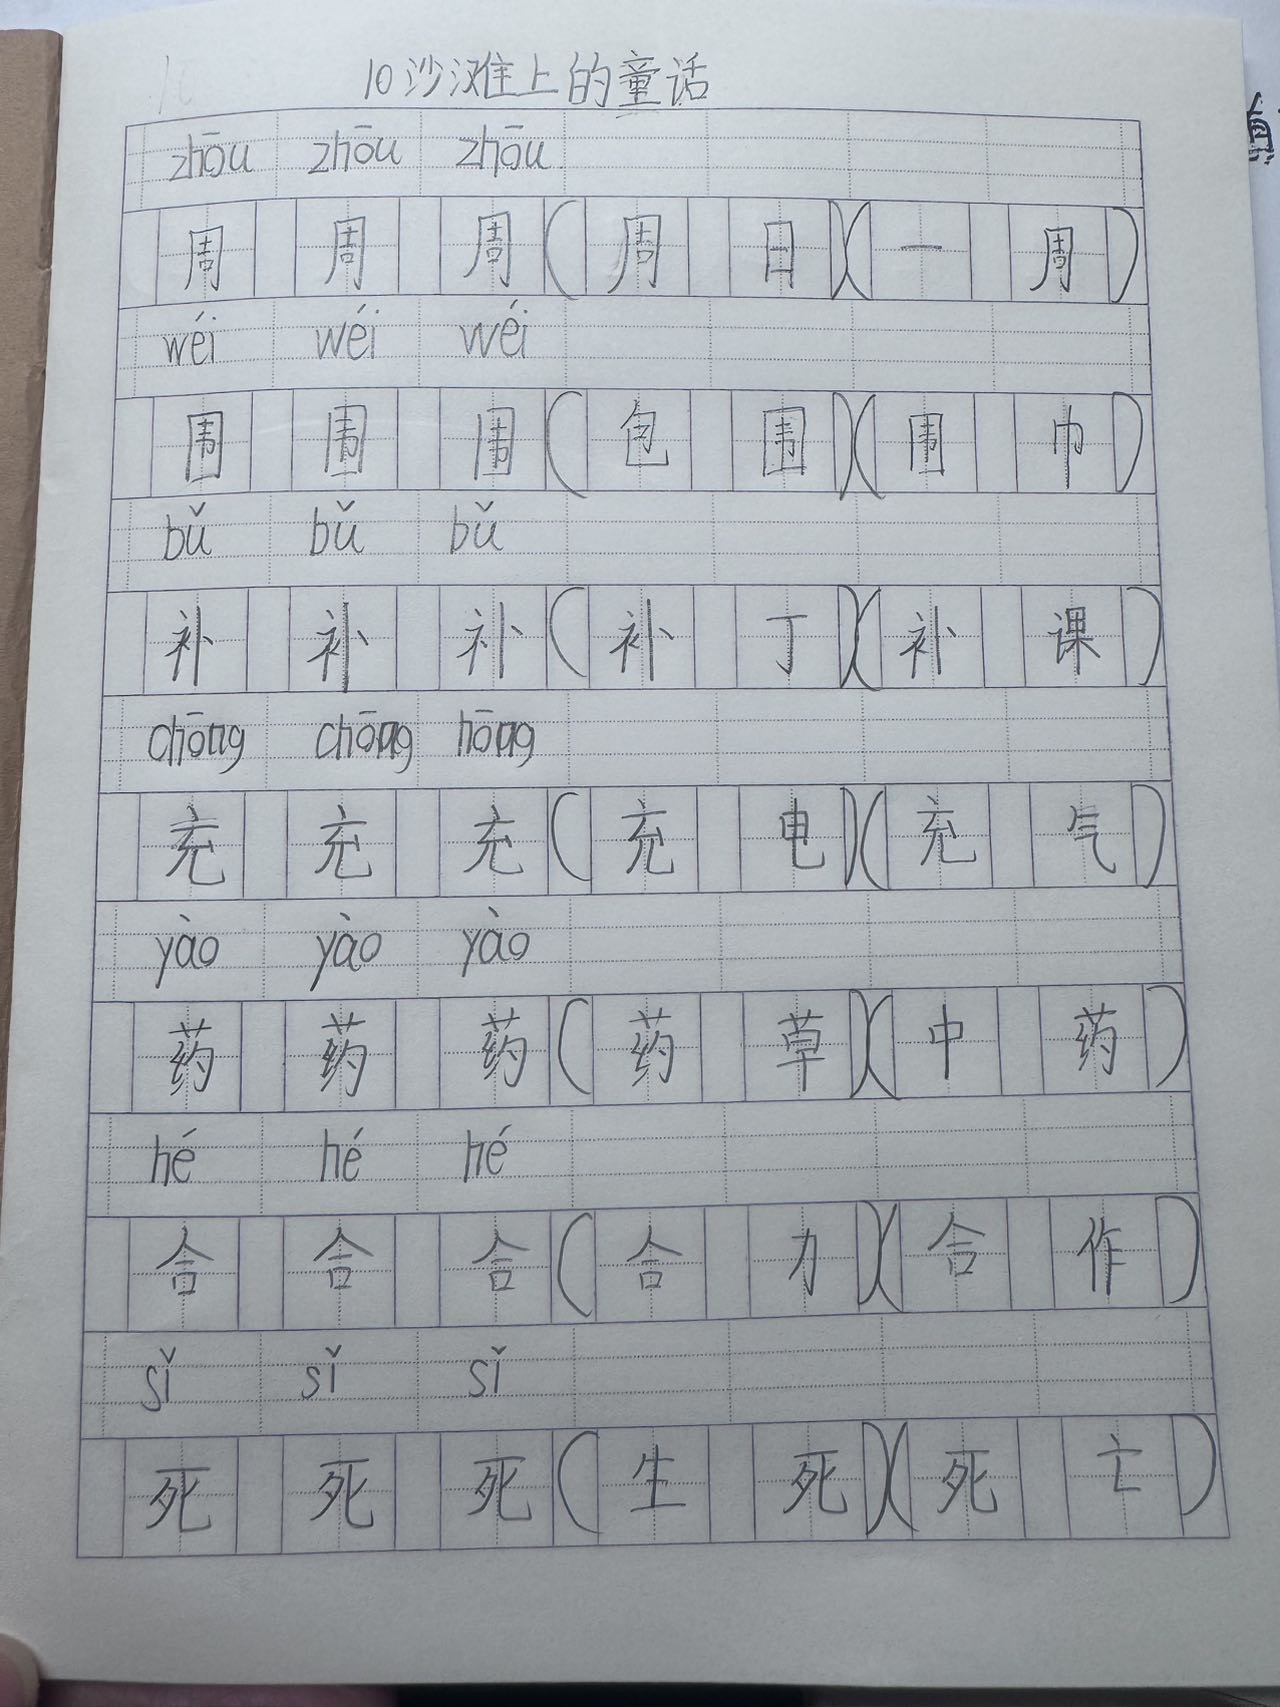 10 沙滩上的童话
zhōu zhōu zhōu
周 周 周 (周 日)(一 周)
wéi wéi wéi
围 围 围 (包 围)(围 巾)
bǔ bǔ bǔ
补 补 补 (补 丁)(补 课)
chōng chōng hōng
充 充 充 (充 电)(充 气)
yào yào yào
药 药 药 (药 草)(中 药)
hé hé hé
合 合 合 (合 力)(合 作)
sǐ sǐ sǐ
死 死 死 (生 死)(死 亡)